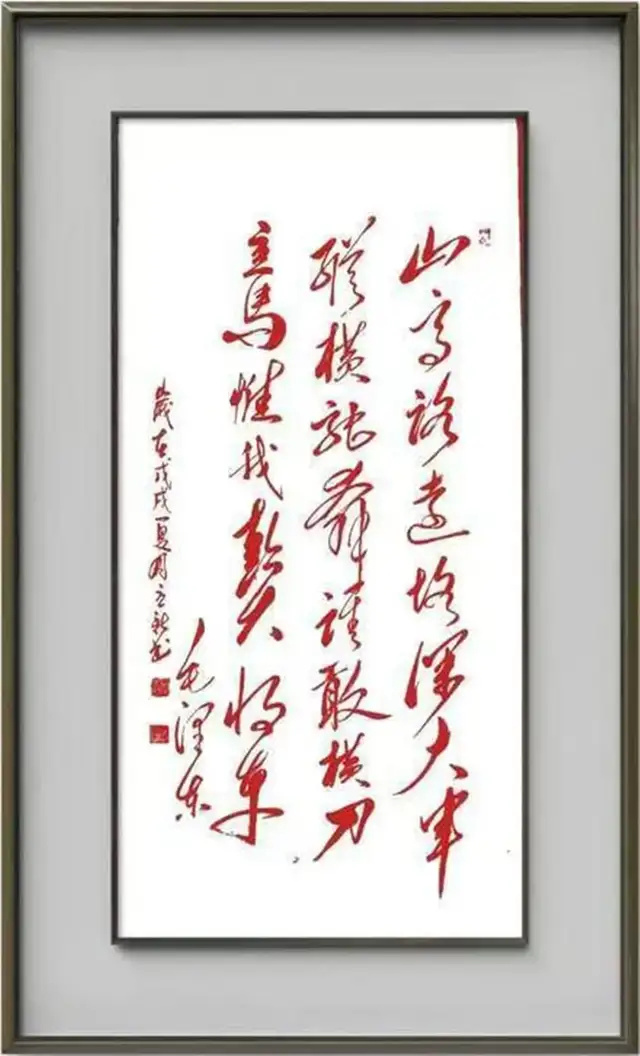 山高路遠坑深大军
縱横驰奔誰敢横刀
立馬惟我彭大将军
毛泽东
歲在戊戌夏周立新书